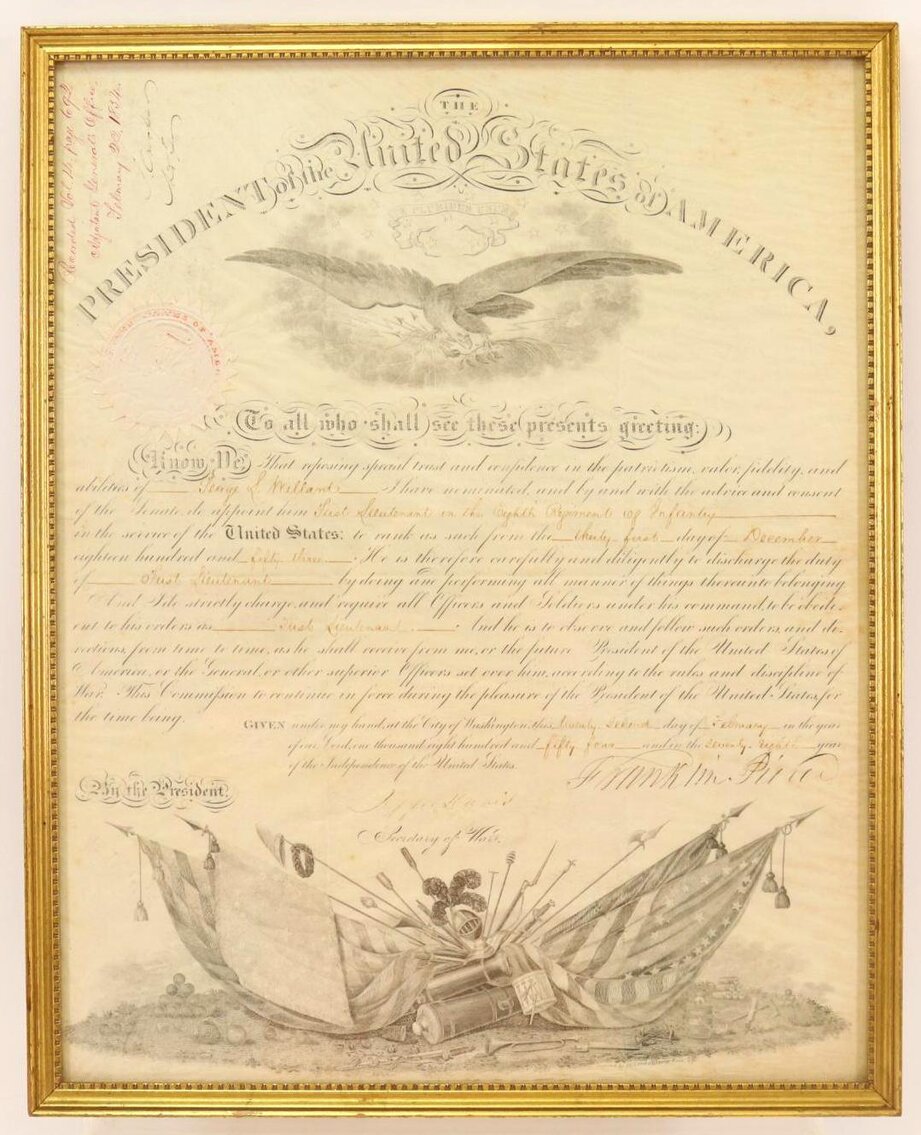 Recorded Vol 12, page 692
Adjutant General's Office
February 22 1854.
THE
PRESIDENT of the United States of AMERICA,
E PLURIBUS UNUM
To all who shall see these presents greeting:
Know Ye That reposing special trust and confidence in the patriotism, valor, fidelity, and
abilities of L Willard I have nominated, and by and with the advice and consent
of the Senate, do appoint him First Lieutenant in the Eighth Regiment of Infantry
in the service of the United States: to rank as such from the thirty first day of December
eighteen hundred and fifty three. He is therefore carefully and diligently to discharge the duty
of First Lieutenant by doing and performing all manner of things thereunto belonging
And I do strictly charge, and require all Officers and Soldiers under his command, to be obedi-
ent to his orders as First Lieutenant. And he is to observe and follow such orders, and di-
rections, from time to time, as he shall receive from me, or the future President of the United States of
America, or the General, or other superior Officers set over him, according to the rules and discipline of
War. This Commission to continue in force during the pleasure of the President of the United States, for
the time being.
GIVEN under my hand, at the City of Washington, this twenty second day of February in the year
of our Lord, one thousand eight hundred and fifty four and in the seventy eighth year
of the Independence of the United States.
Franklin Pierce
By the President,
Jeffer Davis
Secretary of War.